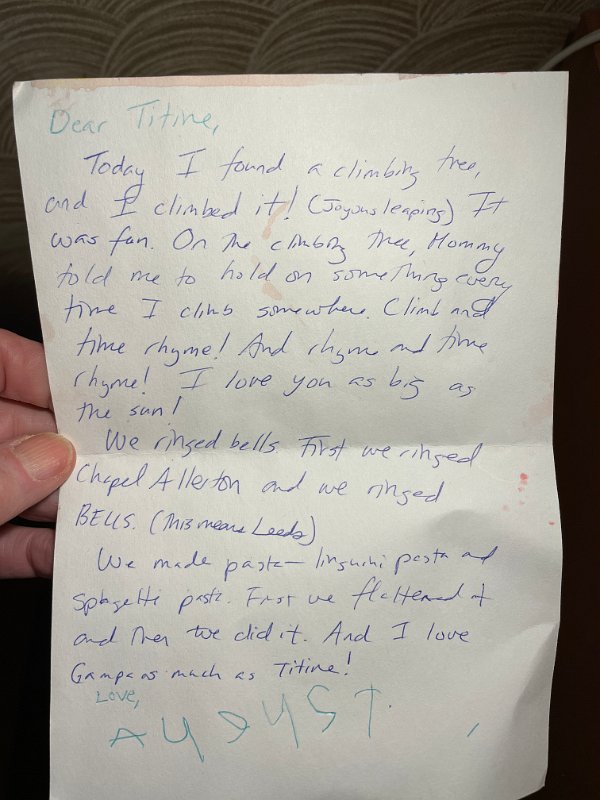 Dear Titine,
Today I found a climbing tree,
and I climbed it! (Joyous leaping) It
was fun. On the climbing tree, Mommy
told me to hold on something every
time I climb somewhere. Climb and
time rhyme! And rhyme and time
rhyme! I love you as big as
the sun!
We ringed bells. First we ringed
Chapel Allerton and we ringed
BELLS. (This means Leeds)
We made pasta — linguini pasta and
spagetti pasta. First we flattened it
and then we did it. And I love
Gampa as much as Titine!
Love,
AUGUST